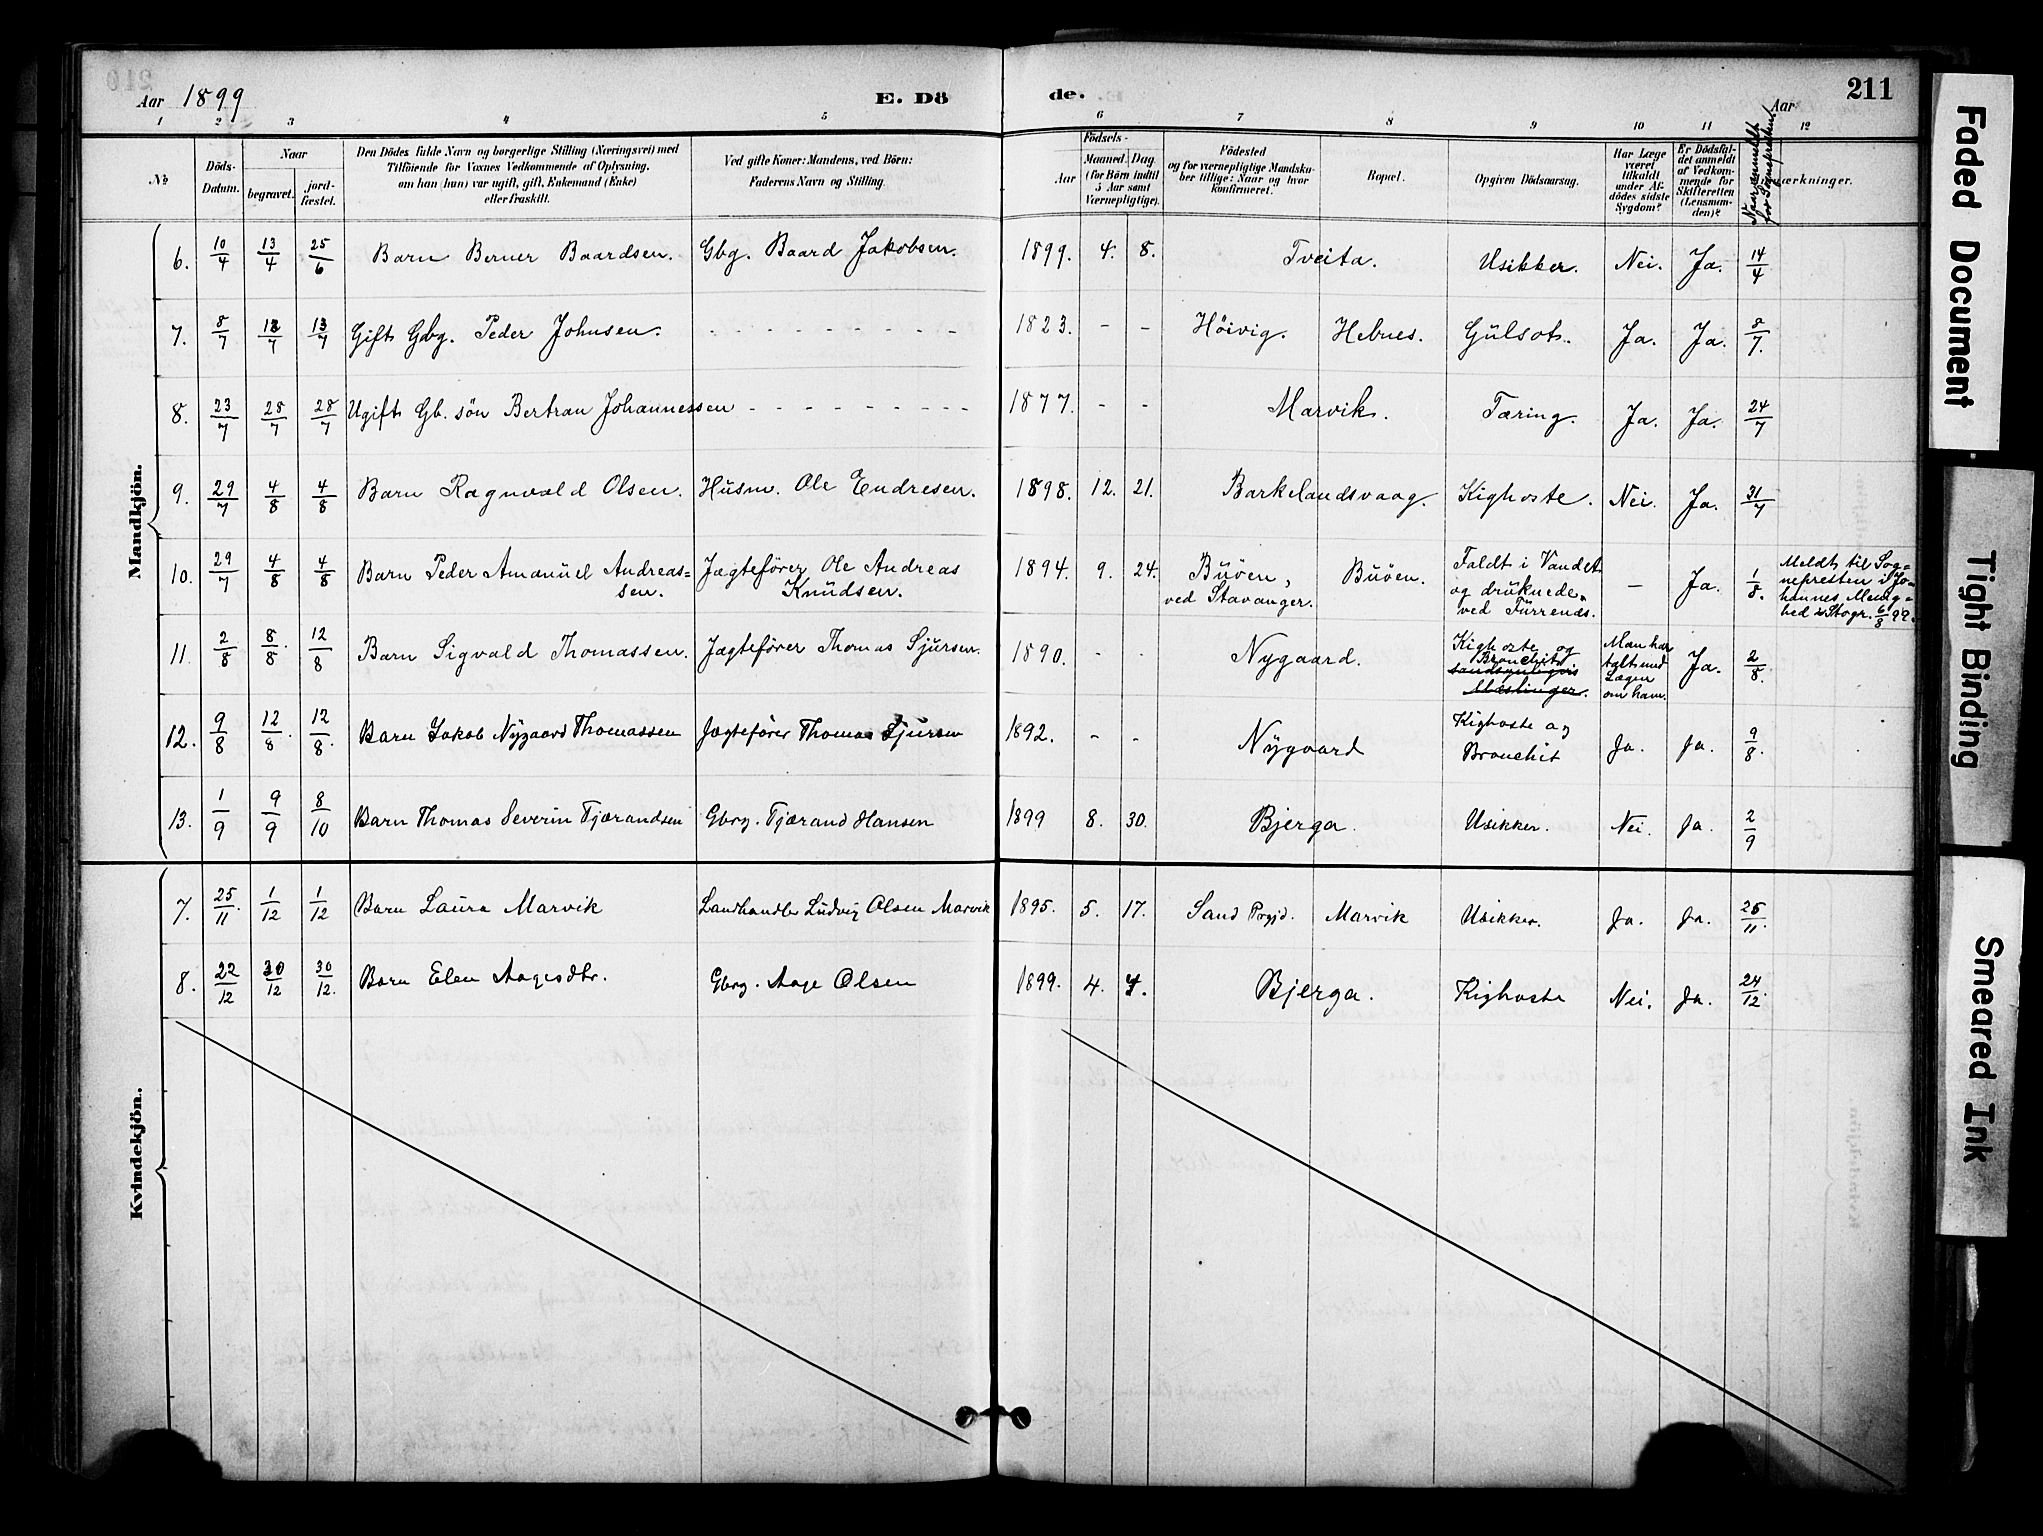 Aar 1899 E. Dö de. 211 Aar
1 2 3 4 5 6 7 8 9 10 11 12
No Döds-Datum. Naar begravet. jord-fæstet. Den Dödes fulde Navn og borgerlige Stilling (Næringsvei) med Tilföiende for Voxnes Vedkommende af Oplysning, om han (hun) var ugift, gift, Enkemand (Enke) eller fraskilt. Ved gifte Koner: Mandens, ved Börn: Faderens Navn og Stilling. Födsels- Aar Maaned. Dag. (for Börn indtil 5 Aar samt Værnepligtige). Födested og for værnepligtige Mandskaber tillige: Naar og hvor konfirmeret. Bopæl. Opgiven Dödsaarsag. Har Læge været tilkaldt under Afdödes sidste Sygdom? Er Dödsfaldet anmeldt af Vedkommende for Skifteretten (Lensmanden)? Naar anmeldt for Sognepresten? Anmærkninger.
Mandkjön.
6. 10/4 13/4 25/6 Barn Berner Baardsen. Gbg. Baard Jakobsen. 1899. 4. 8. Tveita. Usikker. Nei. Ja. 14/4
7. 8/7 13/7 13/7 Gift Gbg. Peder Johnsen. - - - 1823. - - Höivig. Hebnes. Gülsot. Ja. Ja. 8/7.
8. 23/7 28/7 28/7 Ugift Gb. sön Bertran Johannessen - - - 1877. - - Marvik. Tæring. Ja. Ja. 24/7
9. 29/7 4/8 4/8 Barn Ragnvald Olsen. Husm. Ole Endresen. 1898. 12. 21. Barkelandsvaag. Kighoste. Nei. Ja. 31/7
10. 29/7 4/8 4/8 Barn Peder Amanüel Andreas=sen. Jægtefører Ole Andreas Knüdsen. 1894. 9. 24. Büöen, ved Stavanger. Büöen. Faldt i Vandet og drüknede ved Fürrenes. - Ja. 1/8. Meldt til Sog=nepresten i Jo=hannes Menig=hed i Stvgr. 6/8 99.
11. 2/8 8/8. 12/8 Barn Sigvald Thomassen. Jægtefører Thomas Sjürsen. 1890. - - Nygaard. Kighoste og Bronchit sandsynligvis Mæslinger. Man har talt med Lægen om ham. Ja. 2/8.
12. 9/8 12/8. 12/8. Barn Jakob Nÿgaard Thomassen Jægtefører Thomas Sjursen 1892. - - Nÿgaard Kighoste og Bronchit Ja. Ja. 9/8.
13. 1/9 9/9 8/10 Barn Thomas Severin Tjærandsen Gbrg. Tjærand Hansen 1899 8. 30. Bjerga. Usikker. Nei. Ja. 2/9
Kvindekjön.
7. 25/11. 1/12 1/12 Barn Laura Marvik Landhandler Ludvig Olsen Marvik 1895. 5. 17. Sand Prgjd. Marvik Usikker. Ja. Ja. 25/11.
8. 22/12 30/12 30/12. Barn Elen Aagesdtr. Gbrg. Aage Olsen 1899. 4. 4. Bjerga. Kighoste Nei. Ja. 24/12.
Faded Document
Tight Binding
Smeared Ink